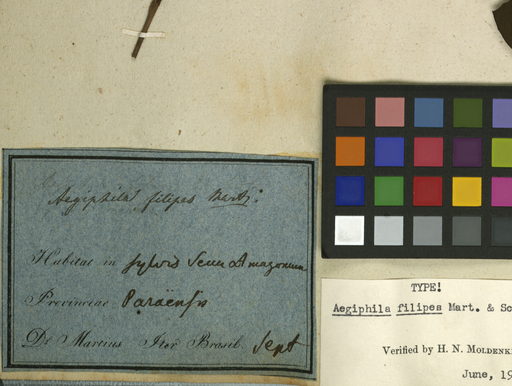 Aegiphila filipes Mart:
Habitat in sylvis secus Amazonum
Provinciae Paraënsis
Dr Martius Iter Brasil. Sept
TYPE!
Aegiphila filipes Mart. & Sc
Verified by H. N. MOLDENK
June, 19